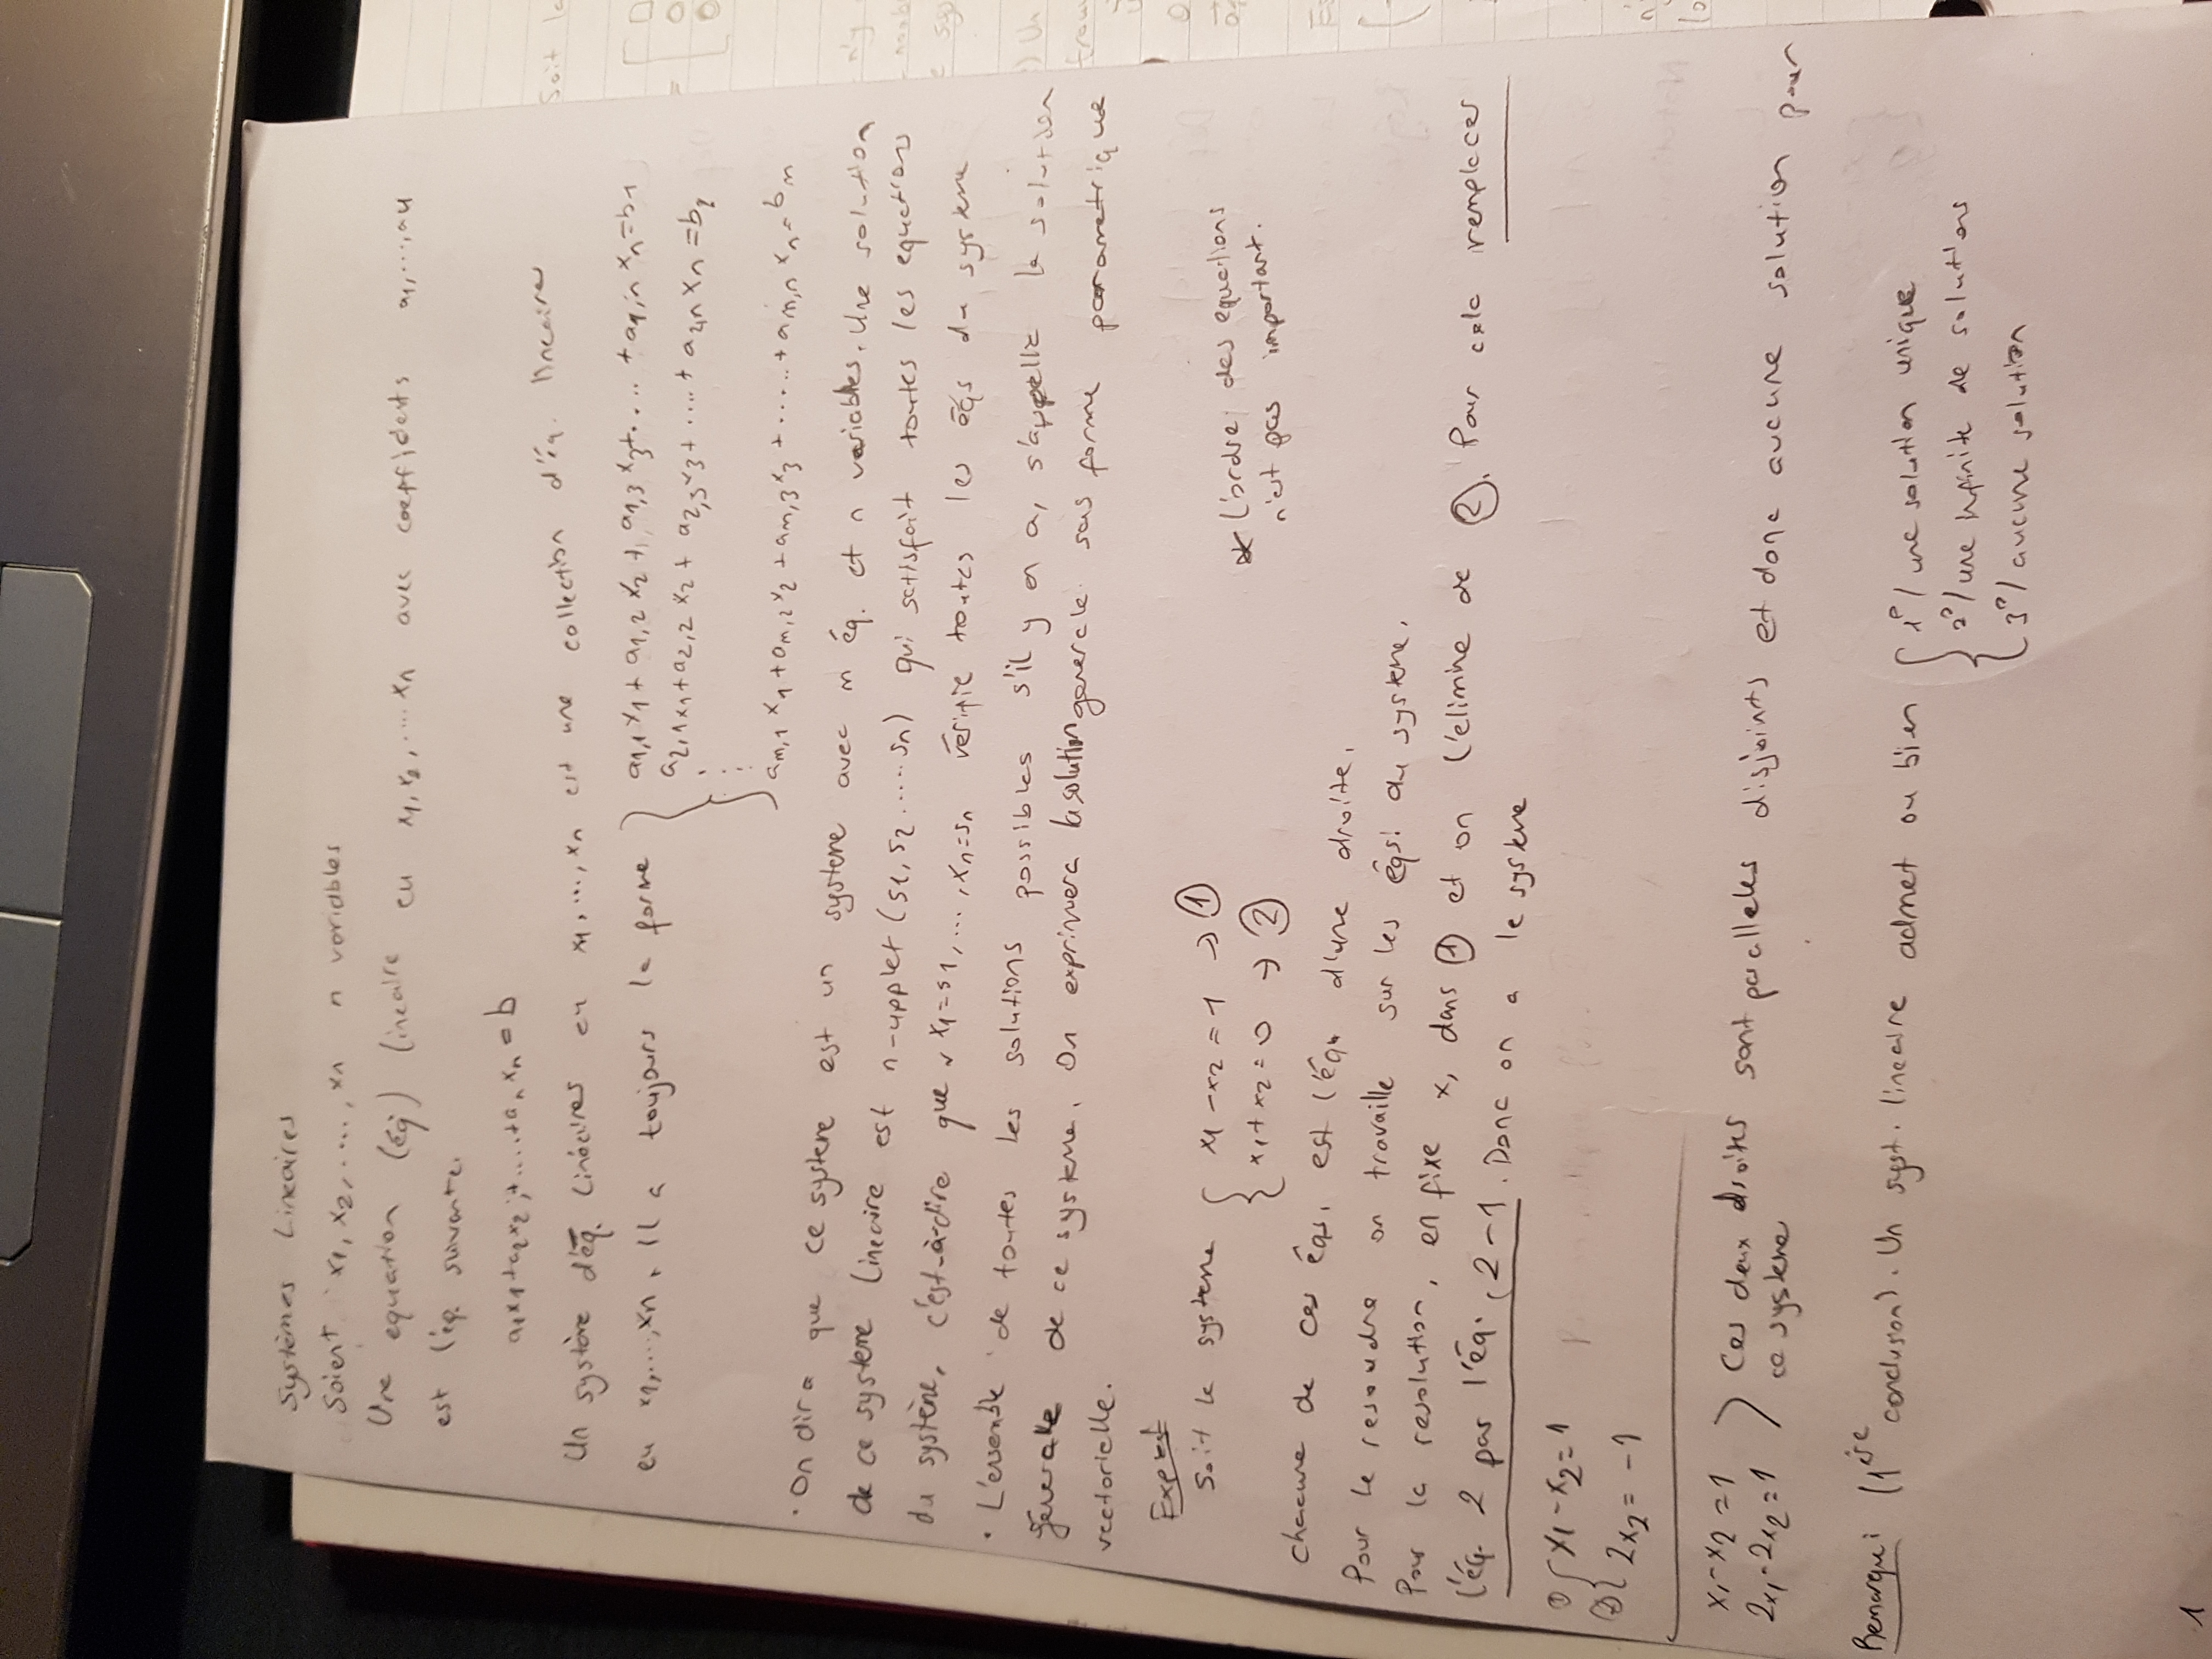 Systèmes Lineaires
Soient x1, x2, ..., xn n variables
Une equation (éq) lineaire en x1, x2, ... xn avec coefficients a1, ..., an
est l'éq. suivante.
a1x1+a2x2+....+anxn=b
Un système d'éq. linéaires en x1, ..., xn est une collection d'éq. lineaires
en x1, ..., xn. Il a toujours la forme
a1,1x1 + a1,2x2 + a1,3x3+.... + a1,nxn=b1
a2,1x1+a2,2x2 + a2,3x3+ .... + a2nxn=b2
am,1x1+am,2x2 + am,3x3+ ..... + am,nxn=bm
• On dira que ce systeme est un systeme avec m éq. et n variables. Une solution
de ce système lineaire est n-upplet (s1, s2 ..... sn) qui satisfait toutes les equations
du système, c'est-à-dire que x1=s1, ..., xn=sn vérifie toutes les éqs du systeme
• L'ensemble de toutes les solutions possibles s'il y en a, s'appelle la solution
génerale de ce systeme. On exprimera la solution generale sous forme parametrique
vectorielle.
Exple1
Soit le systeme { x1 - x2 = 1 → ①
x1 + x2 = 0 → ②
* L'ordre des equations
n'est pas important.
Chacune de ces éqs. est l'éqn d'une droite.
Pour le resoudre on travaille sur les éqs. du systeme.
Pour la resolution, on fixe x, dans ① et on l'elimine de ②. Pour cela remplacer
l'éq. 2 par l'éq. 2 - 1. Donc on a le systeme
① { x1 - x2 = 1
② { 2x2 = -1
x1 - x2 = 1
2x1 - 2x2 = 1 ) Ces deux droites sont paralleles disjoints et donc aucune solution pour
ce systeme
Remarque: (1ère conclusion). Un syst. lineaire admet ou bien { 1°/ une solution unique
2°/ une infinite de solutions
3°/ aucune solution
1